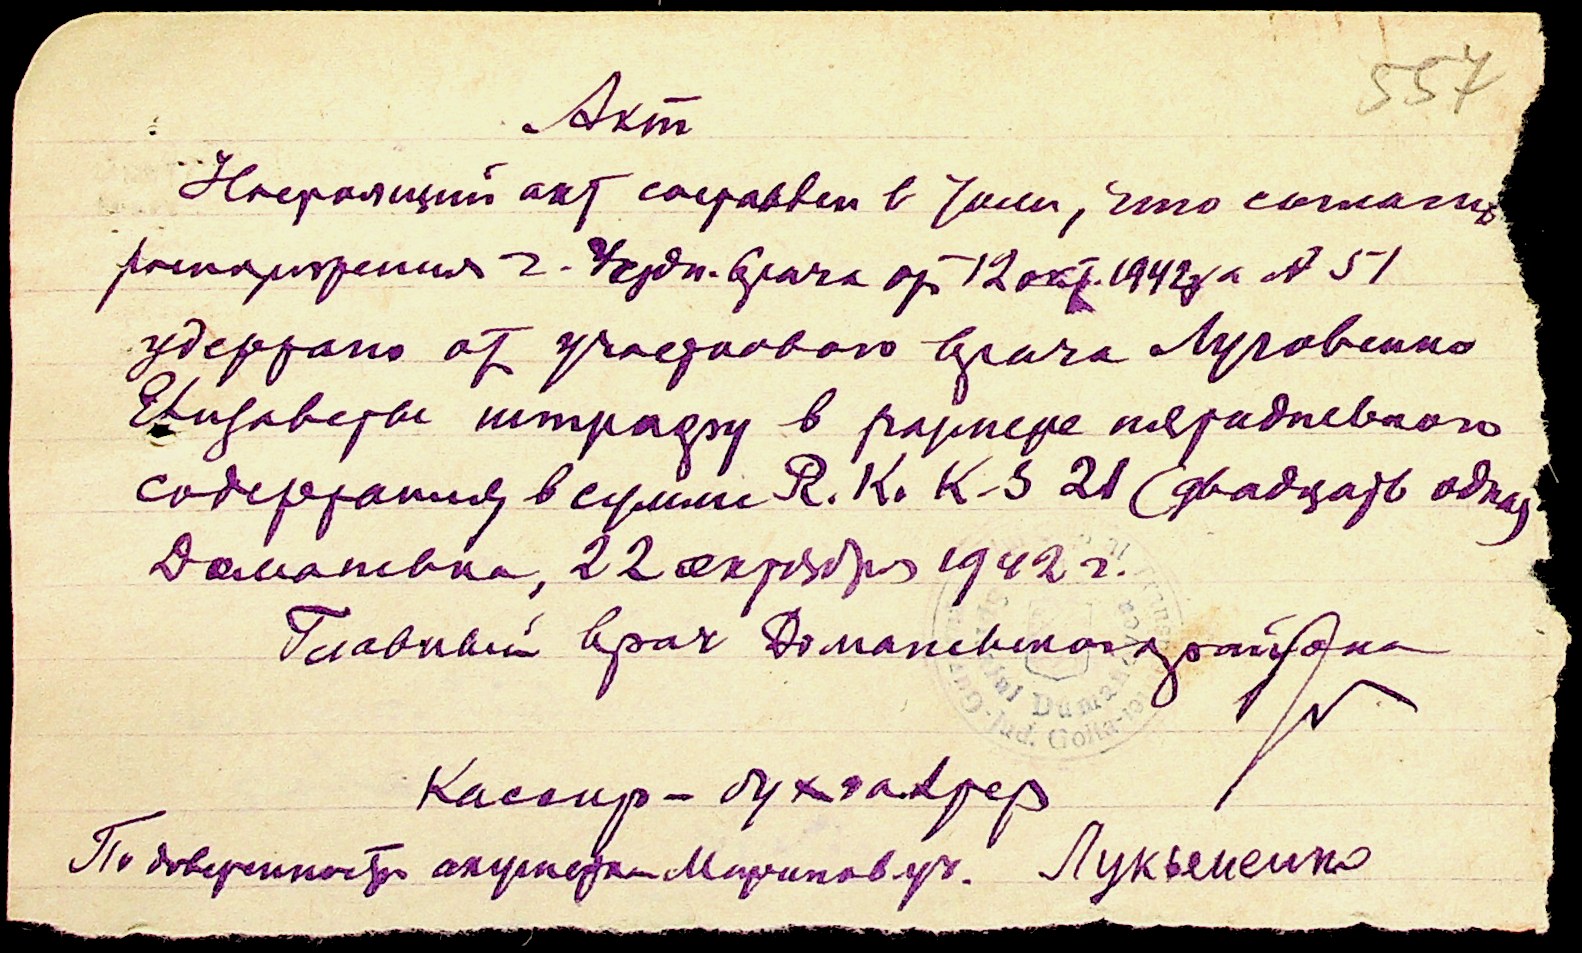 557
Акт
Настоящий акт составлен в том, что согласно
распоряжения г. Уездн. врача от 12 окт. 1942 за № 51
удержано от участкового врача Луговенко
Елизаветы штрафу в размере пятидневного
содержания, в сумме R. K. K-S 21 (двадцать одна)
Доманевка, 22 октября 1942 г.
Главный врач Доманевского района
Jud. Golta
Кассир - бухгалтер
По доверенности акушерка Мариновск. уч. Лукьяненко